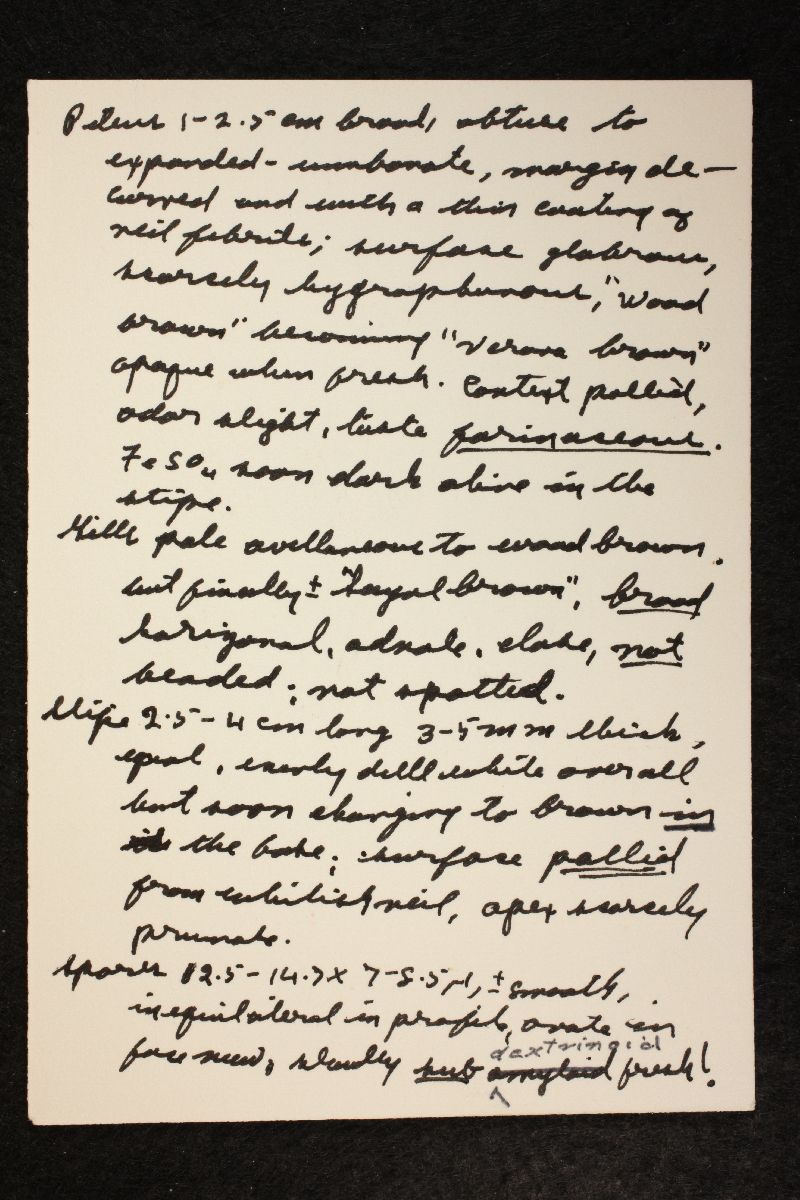 Pileus 1-2.5 cm broad, obtuse to
expanded-umbonate, margin de-
curved and with a thin coating of
veil fibrils; surface glabrous,
scarcely hygrophanous, "wood
brown" becoming "Verona brown"
opaque when fresh. Context pallid,
odor slight, taste farinaceous.
FeSO4 soon dark olive in the
stipe.
Gills pale avellaneous to wood brown.
but finally ± "Sayal brown", broad
horizonal, adnate, close, not
beaded; not spotted.
Stipe 2.5-4 cm long 3-5 mm thick,
equal, evenly dull white overall
but soon changing to brown in
the base; surface pallid
from whitish veil, apex scarcely
pruinate.
Spores 12.5-14.5 x 7-8.5 µ, ± smooth,
inequilateral in profile, ovate in
face view, slowly sub dextrinoid fresh!